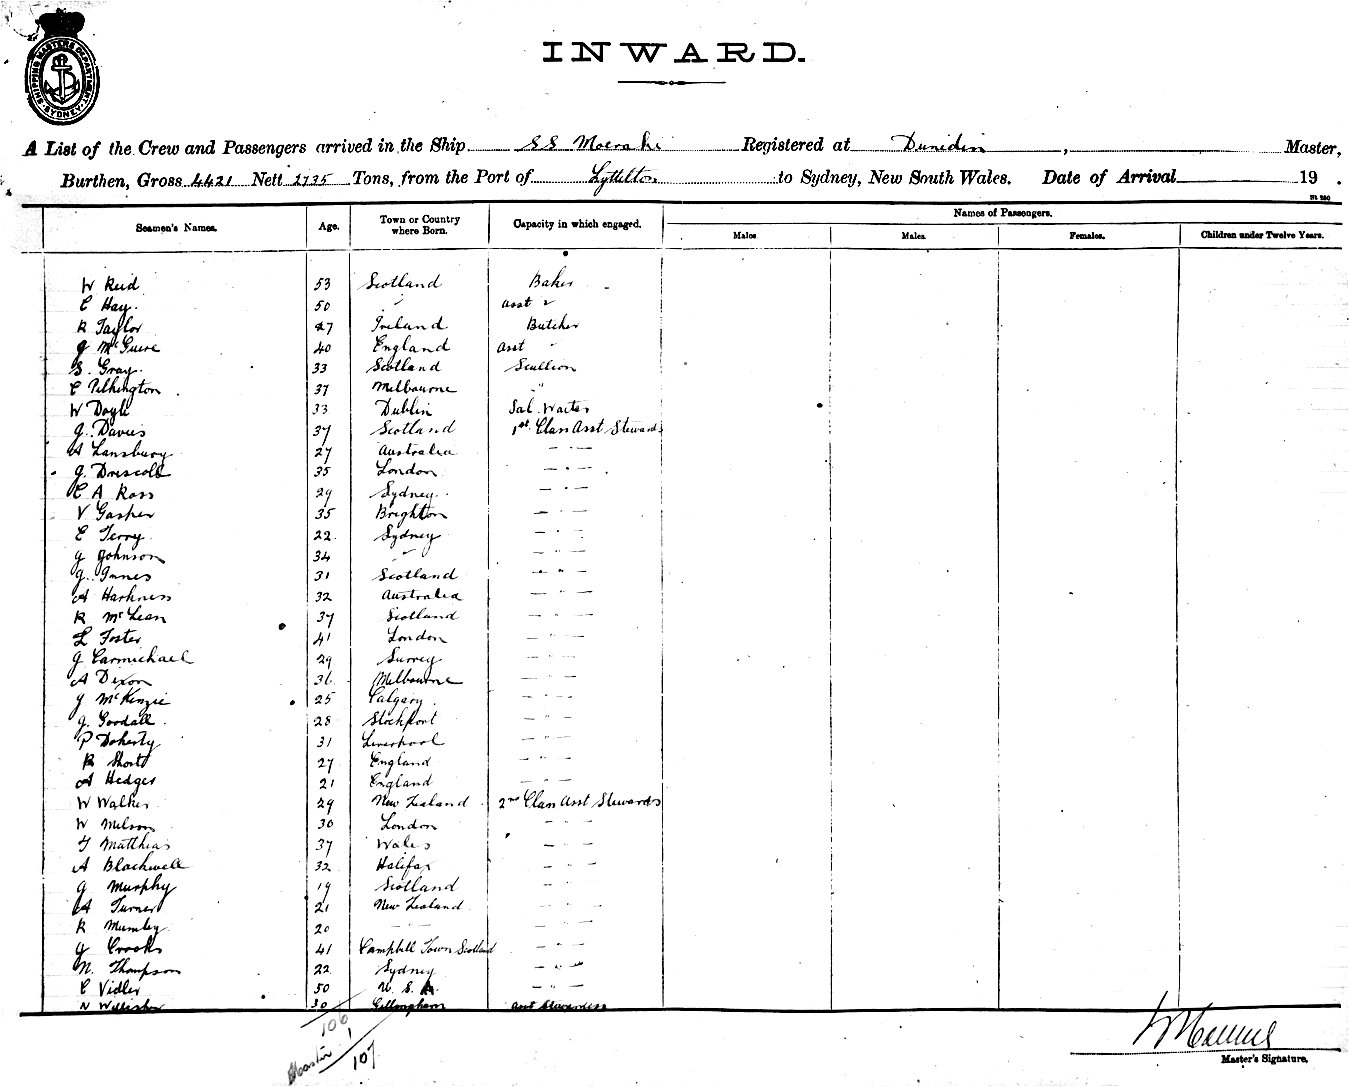 SHIPPING MASTERS DEPARTMENT SYDNEY
INWARD.
A List of the Crew and Passengers arrived in the Ship SS Moeraki Registered at Dunedin , Master,
Burthen, Gross 4421 Nett 2735 Tons, from the Port of Lyttelton to Sydney, New South Wales. Date of Arrival 19 .
Seamen's Names. Age. Town or Country where Born. Capacity in which engaged. Names of Passengers.
Males Males. Females. Children under Twelve Years.
W Reid 53 Scotland Baker
C Hay 50 " Asst "
R Taylor 47 Ireland Butcher
J McGuire 40 England Asst "
S. Gray 33 Scotland Scullion
C Pilkington 37 Melbourne "
W Doyle 33 Dublin Sal. Waiter
J. Davies 37 Scotland 1st Class Asst Stewards
A Lansbury 27 Australia — " —
J. Driscoll 35 London — " —
C A Ross 29 Sydney — " —
V Gasher 35 Brighton — " —
E Terry 22 Sydney — " —
J Johnson 34 " — " —
J. Innes 31 Scotland " " —
A Harkness 32 Australia — " —
R McLean 37 Scotland — " —
L Foster 41 London — " —
J Carmichael 29 Surrey — " —
A Dixon 36 Melbourne — " —
J McKenzie 25 Calgary — " —
J. Goodall 28 Stockport — " —
P Doherty 31 Liverpool — " —
R Short 27 England — " —
A Hedges 21 England — " —
W Walker 29 New Zealand 2nd Class Asst Stewards
W Milson 30 London — " —
T Matthias 37 Wales — " —
A Blackwell 32 Halifax — " —
J Murphy 19 Scotland — " —
A Turner 21 New Zealand — " —
R Mumby 20 — " — — " —
J Crooks 41 Campbell Town Scotland — " —
N. Thompson 22 Sydney — " —
C Vidler 50 U. S. A — " —
N 30 Gillingham Asst Stewardess
106
Master 1
107
Master's Signature.